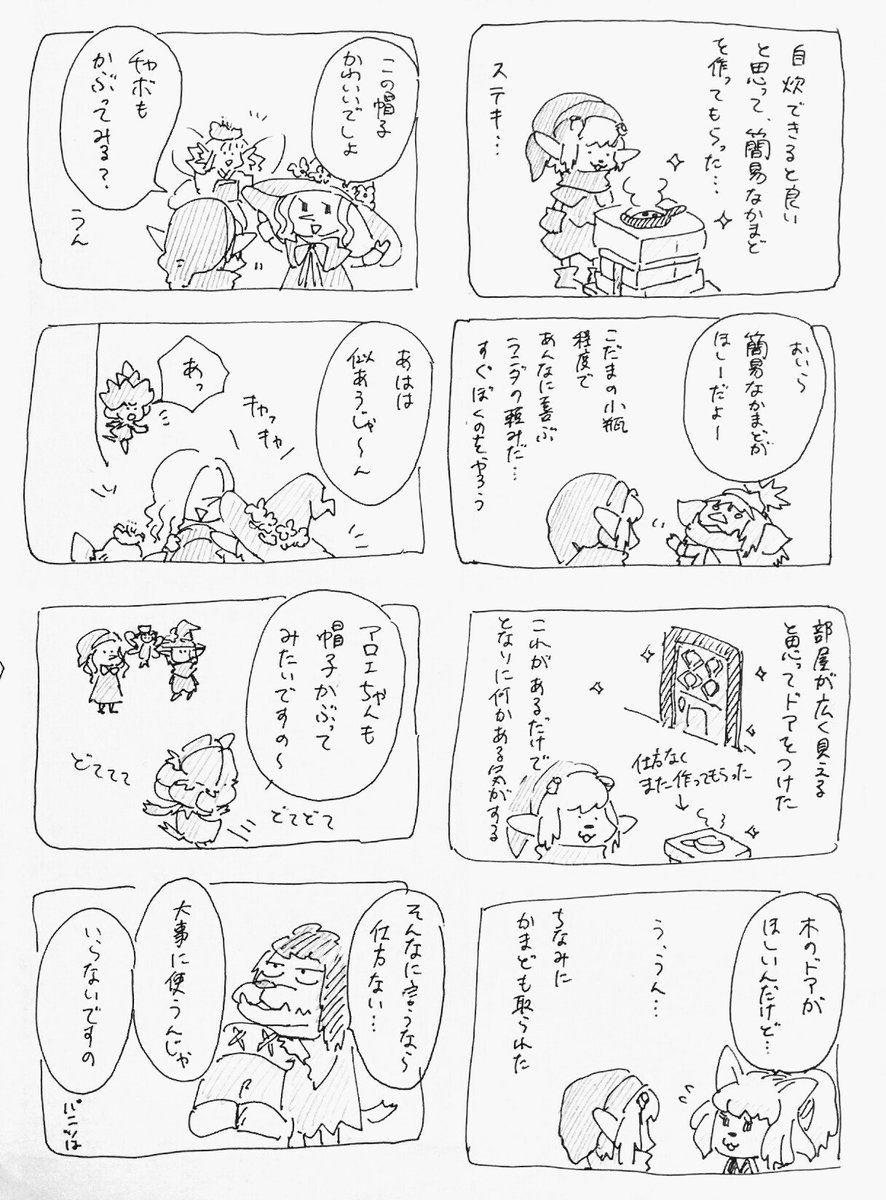 自炊できると良い
と思って、簡易なかまど
を作ってもらった…
ステキ…
おいら
簡易なかまどが
ほしーだよー
こだまの小瓶
程度で
あんなに喜ぶ
ランダの頼みだ…
すぐぼくのをやろう
部屋が広く見える
と思ってドアをつけた
仕方なく
また作ってもらった
これがあるだけで
となりに何かある気がする
木のドアが
ほしいんだけど…
う、うん…
ちなみに
かまども取られた
この帽子
かわいいでしょ
チャボも
かぶってみる?
うん
あはは
似あうじゃ〜ん
キャッ
キャ
あっ
アロエちゃんも
帽子かぶって
みたいですの〜
どててて
どてどて
そんなに言うなら
仕方ない…
大事に使うんじゃ
いらないですの
パンツは